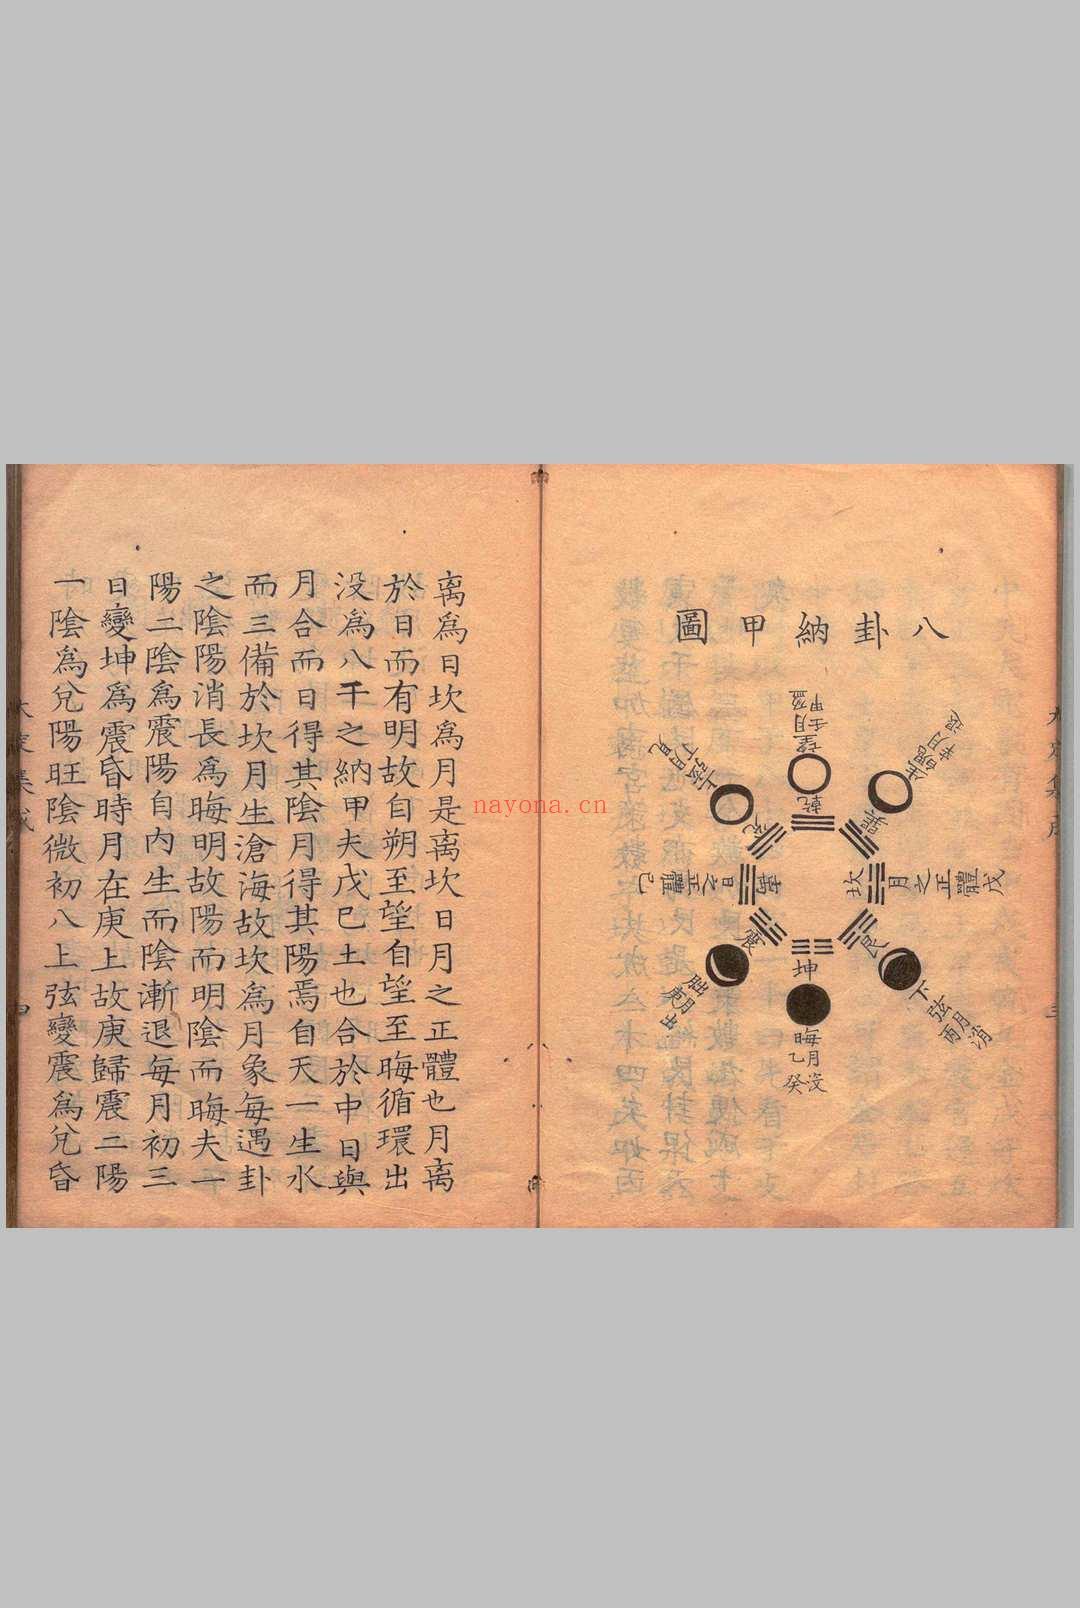 八卦納甲圖
乾
望月盈
壬甲
巽
生魄
辛月退
坎
月之正體戊
艮
下弦月消
丙
坤
晦月沒
乙癸
震
朏月出
庚
離
日之正體己
兌
上弦月見
丁
离為日坎為月是离坎日月之正體也月离
於日而有明故自朔至望自望至晦循環出
没為八千之納甲夫戊巳土也合於中日與
月合而日得其陰月得其陽焉自天一生水
而三備於坎月生滄海故坎為月象每遇卦
之陰陽消長為晦明故陽而明陰而晦夫一
陽二陰為震陽自内生而陰漸退每月初三
日變坤為震昏時月在庚上故庚歸震二陽
一陰為兌陽旺陰微初八上弦變震為兌昏
大定集成
nayona.cn